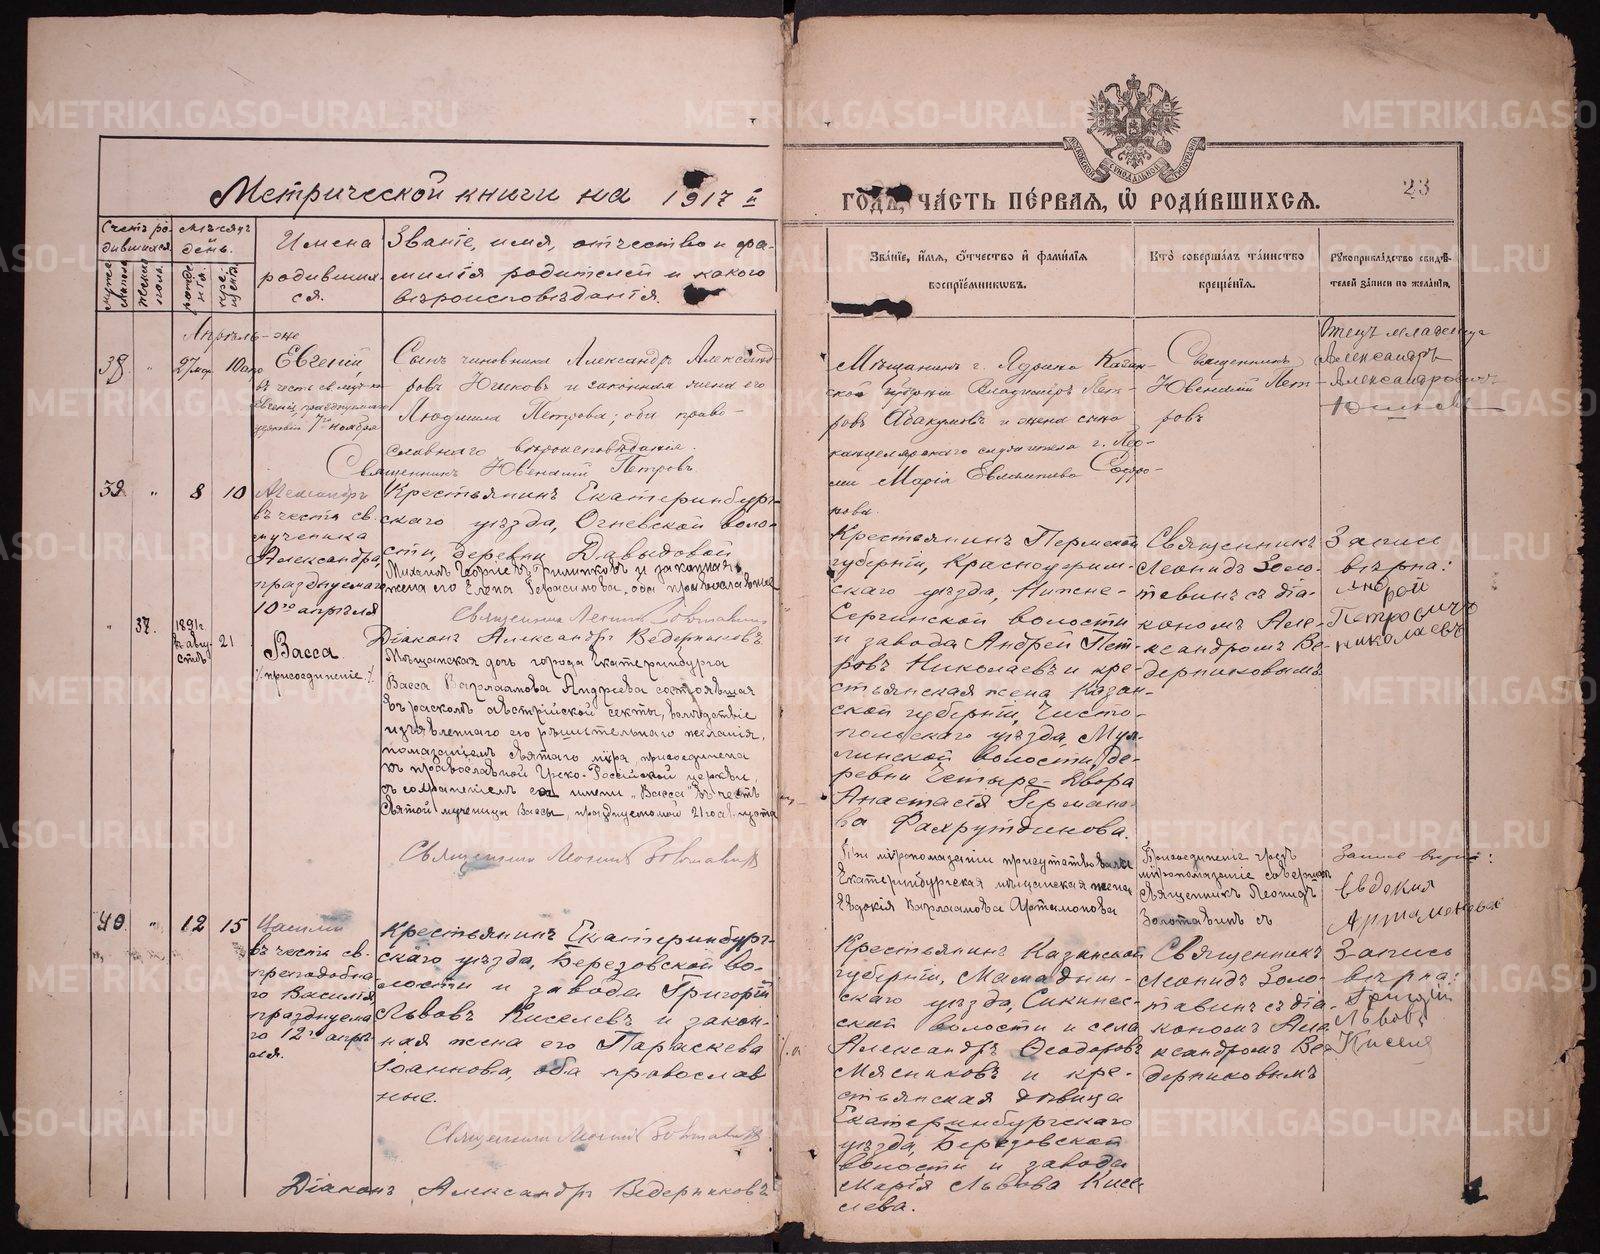 Метрической книги на 1917 й
ГОДЪ, ЧАСТЬ ПЕРВАЯ, Ѡ РОДИВШИХСЯ.
23
Счетъ ро-
дившихся.
Мужеска
пола.
Женск.
пола.
Мѣсяцъ
день.
рожде-
нія.
кре-
щенія.
Имена
родивших-
ся.
Званіе, имя, отчество и фа-
милія родителей и какого
вѣроисповѣданія.
Званіе, имя, отчество и фамилія
воспріемниковъ.
Кто совершалъ таинство
крещенія.
Рукоприкладство свидѣ-
телей записи по желанію.
Апрѣль-же
38. " 27 мар. 10 апр
Евгеній,
въ честь св. муч-ка
Евгенія, празднуемаго
7го ноября
Сынъ чиновника Александръ Александ
ровъ Юшковъ и законная жена его
Людмила Петрова; оба право-
славнаго вѣроисповѣданія.
Священникъ Ювеналій Петровъ.
Мѣщанинъ г. Ядрина Казан-
ской губерніи Владимиръ Пет-
ровъ Абакумовъ и жена сына
канцелярскаго служителя г.
Марія Евлампіева Софро-
нова.
Священникъ
Ювеналій Пет-
ровъ
Отецъ младенца
Александръ
Александровичъ
Юшковъ
39. " 8 10
Александръ
въ честь св.
мученика
Александра,
празднуемаго
10го апрѣля
Крестьянинъ Екатеринбург-
скаго уѣзда, Огневской воло-
сти, деревни Давыдовой
Михаилъ Георгіевъ и законная
жена его Елена Герасимова, оба православные
Священникъ Леонидъ Золотавинъ
Діаконъ Александръ Ведерниковъ
Крестьянинъ Пермской
губерніи, Красноуфим-
скаго уѣзда, Нижне-
Сергинской волости
и завода Андрей Пет-
ровъ Николаевъ и кре-
стьянская жена Казан-
ской губерніи, Чисто-
польскаго уѣзда, Мул-
линской волости, де-
ревни Четыре-Двора
Анастасія Германо-
ва Фахрутдинова.
Священникъ
Леонидъ Золо-
тавинъ съ діа-
кономъ Але-
ксандромъ Ве-
дерниковымъ
Запись
вѣрна:
Андрей
Петровичъ
Николаевъ
" 37. 1891г.
въ авгу-
стѣ 21
Васса
/присоединеніе/.
Мѣщанская дочь города Екатеринбурга
Васса Варлаамова Андреева состоявшая
въ расколѣ австрійской секты, вслѣдствіе
изъявленнаго ею рѣшительнаго желанія,
помазаніемъ святаго мѵра, присоединена
къ православной Греко-Россійской церкви,
съ сохраненіемъ ея имени "Васса" въ честь
Святой мученицы Вассы, празднуемой 21го августа
Священникъ Леонидъ Золотавинъ
При мѵропомазаніи присутствовала
Екатеринбургская мѣщанская жена
Евдокія Варлаамова Артамонова
Присоединеніе чрезъ
мѵропомазаніе совершилъ
священникъ Леонидъ
Золотавинъ съ
Запись вѣрна:
Евдокия
40. " 12 15
Василій
въ честь св.
преподобна-
го Василія,
празднуема
го 12го апрѣ
ля.
Крестьянинъ Екатеринбург-
скаго уѣзда, Березовской во-
лости и завода Григорій
Львовъ Киселевъ и закон-
ная жена его Параскева
Іоаннова, оба православ
ные.
Священникъ Леонидъ Золотавинъ
Діаконъ Александръ Ведерниковъ
Крестьянинъ Казанской
губерніи, Мамадыш-
скаго уѣзда, Сикинес-
ской волости и села
Александръ Ѳеодоровъ
Мясниковъ и кре-
стьянская дѣвица
Екатеринбургскаго
уѣзда, Березовской
волости и завода
Марія Львова Кисе-
лева.
Священникъ
Леонидъ Золо-
тавинъ съ діа-
кономъ Але
ксандромъ Ве
дерниковымъ
Запись
вѣрна:
Григорій
Львовъ
METRIKI.GASO-URAL.RU